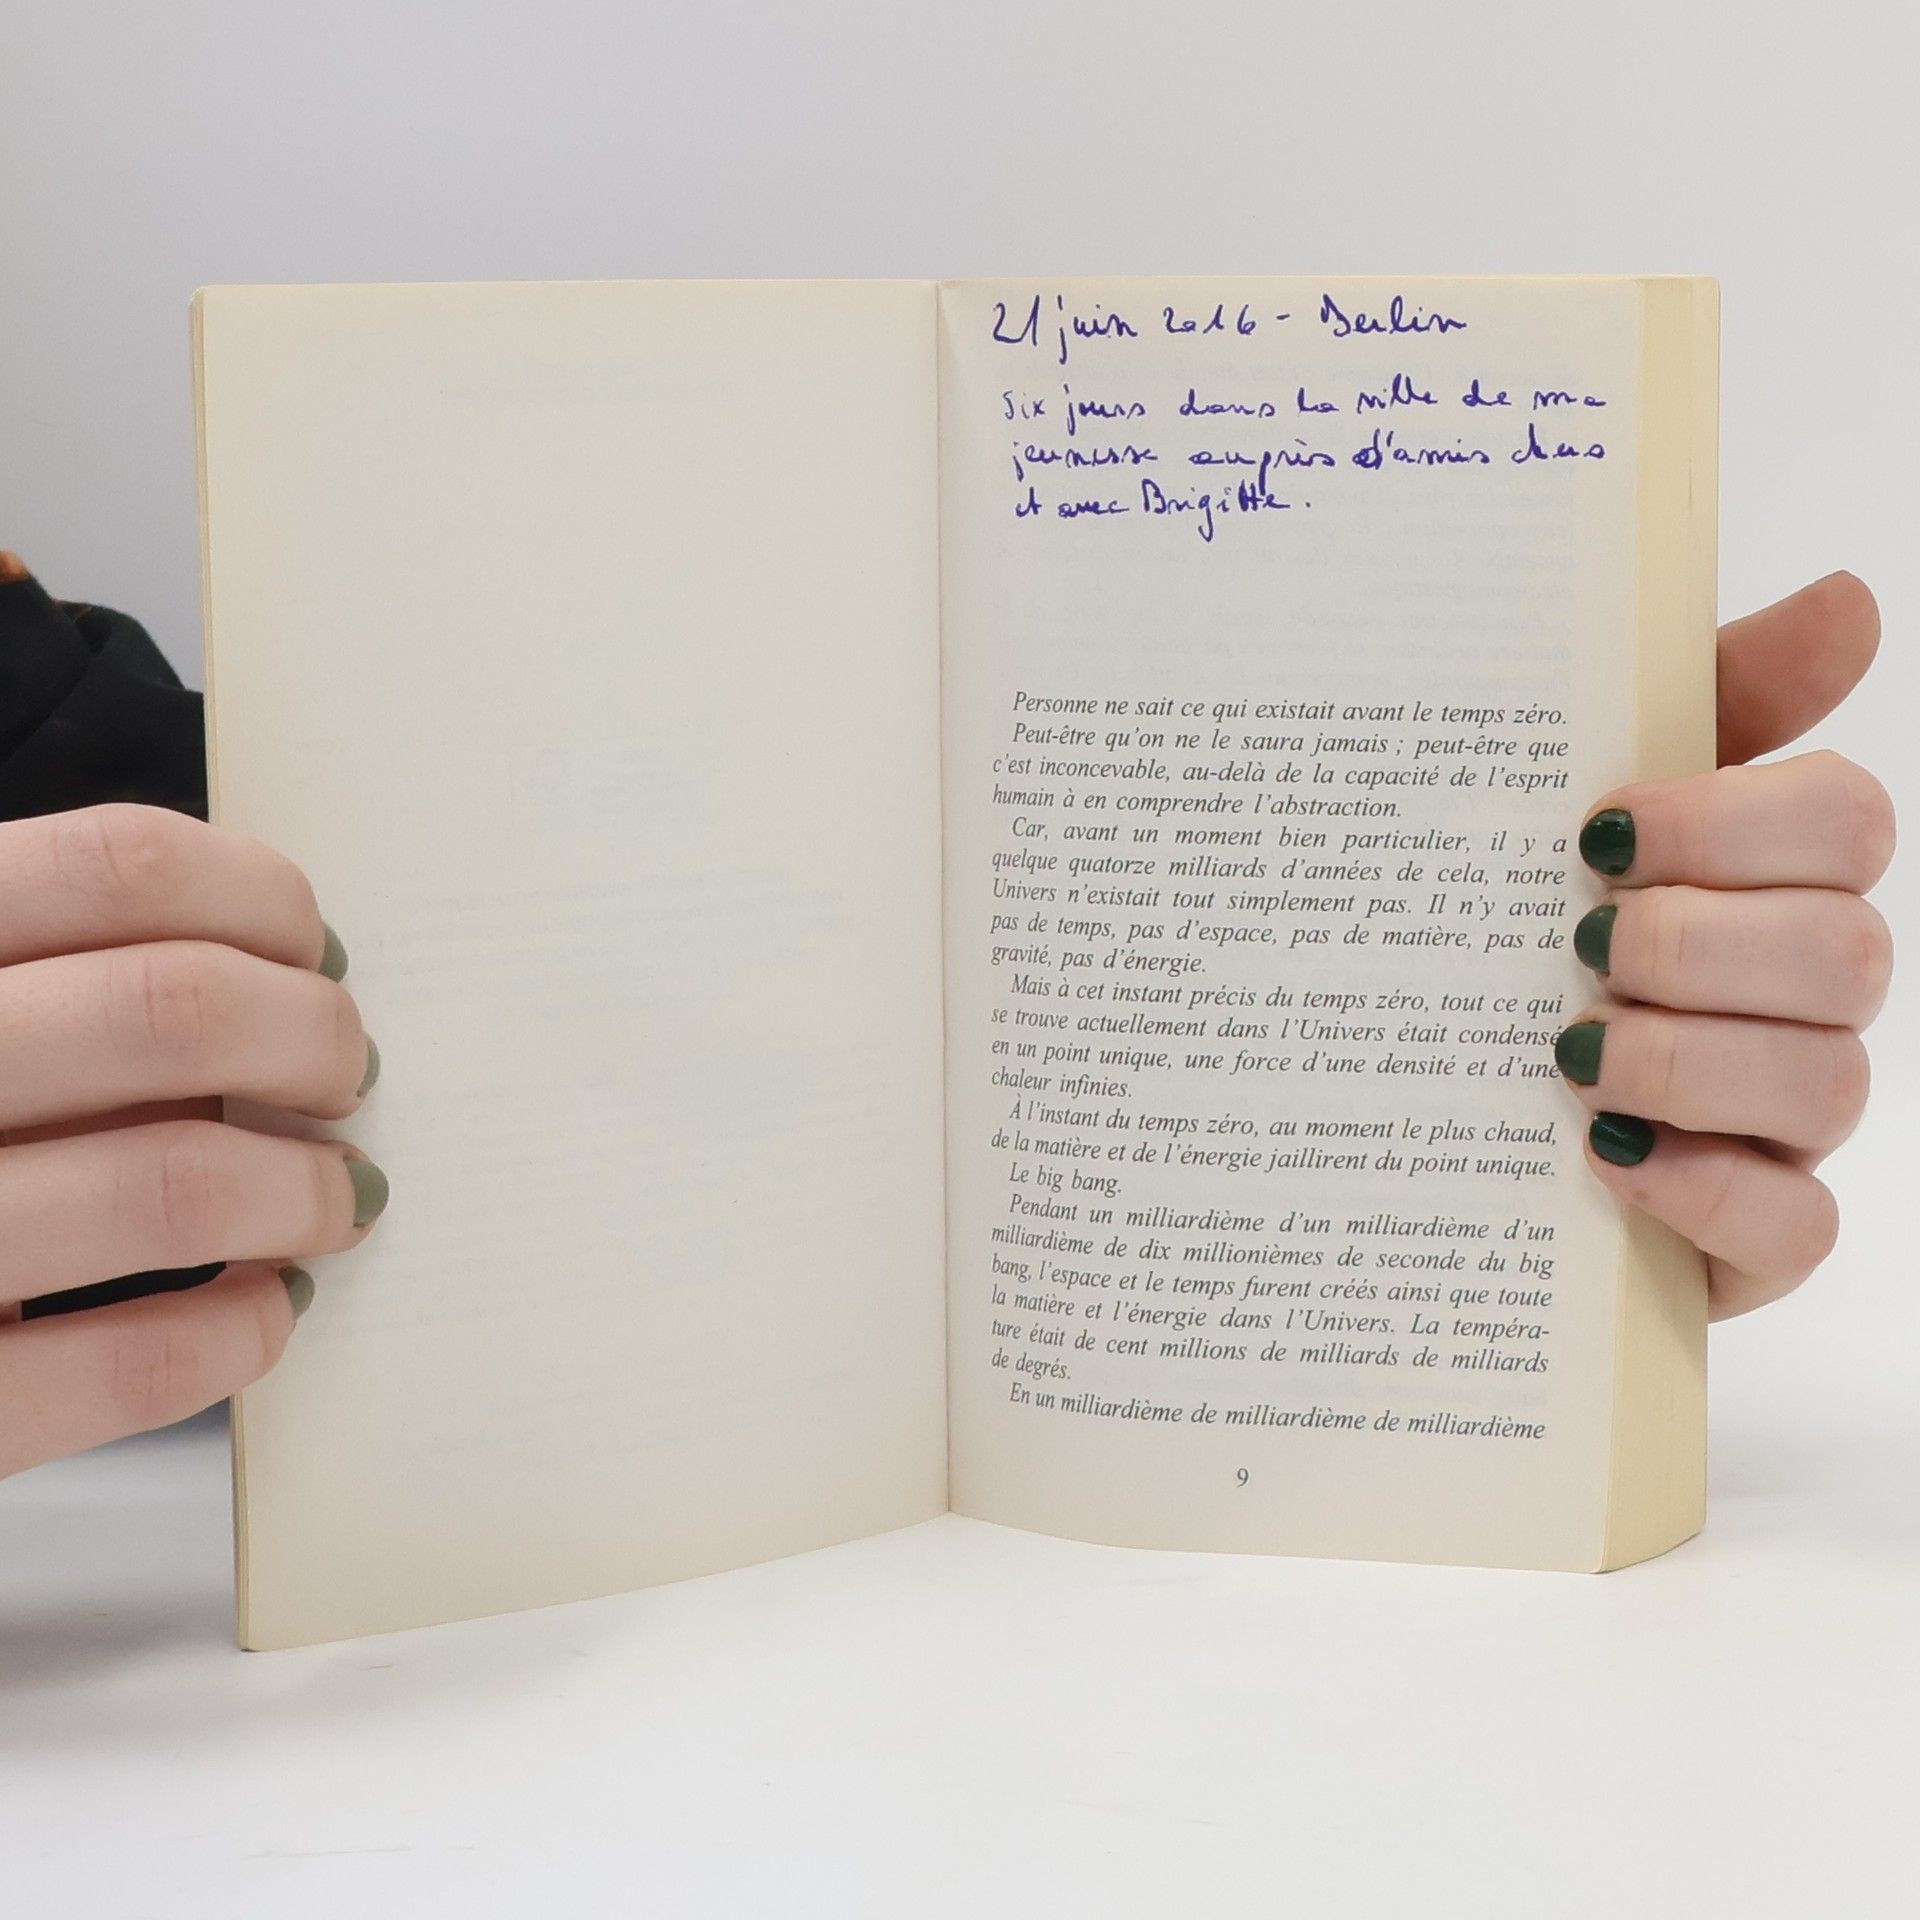 21 juin 2016 - Berlin
Six jours dans la ville de ma
jeunesse auprès d'amis chers
et avec Brigitte.
Personne ne sait ce qui existait avant le temps zéro.
Peut-être qu'on ne le saura jamais ; peut-être que
c'est inconcevable, au-delà de la capacité de l'esprit
humain à en comprendre l'abstraction.
Car, avant un moment bien particulier, il y a
quelque quatorze milliards d'années de cela, notre
Univers n'existait tout simplement pas. Il n'y avait
pas de temps, pas d'espace, pas de matière, pas de
gravité, pas d'énergie.
Mais à cet instant précis du temps zéro, tout ce qui
se trouve actuellement dans l'Univers était condensé
en un point unique, une force d'une densité et d'une
chaleur infinies.
À l'instant du temps zéro, au moment le plus chaud,
de la matière et de l'énergie jaillirent du point unique.
Le big bang.
Pendant un milliardième d'un milliardième d'un
milliardième de dix millionièmes de seconde du big
bang, l'espace et le temps furent créés ainsi que toute
la matière et l'énergie dans l'Univers. La tempéra-
ture était de cent millions de milliards de milliards
de degrés.
En un milliardième de milliardième de milliardième
9